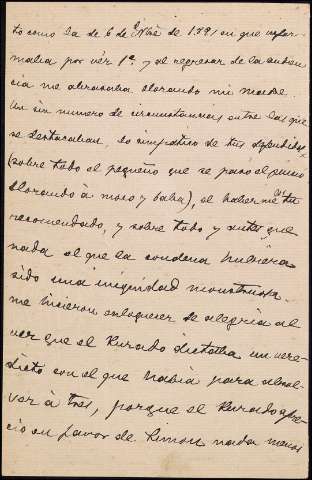 to como la de 6 de de 1891 en que infor-
maba por vez 1ª y al regresar de la audien-
cia me abrazaba llorando mi madre.
Un sin numero de circunstancias entre las que
se destacaban, lo simpático de tus
(sobre todo el pequeño que se pasó el juicio
llorando á moco y baba), el haberme los tu
recomendado, y sobre todo y antes que
nada el que la condena hubiera
sido una iniquidad monstruosa.
me hicieron enloquecer de alegria al
ver que el Jurado dictaba un vere-
dicto con el que habia para absol-
ver á tres, porque el Jurado apre-
ció en favor de Simon nada menos